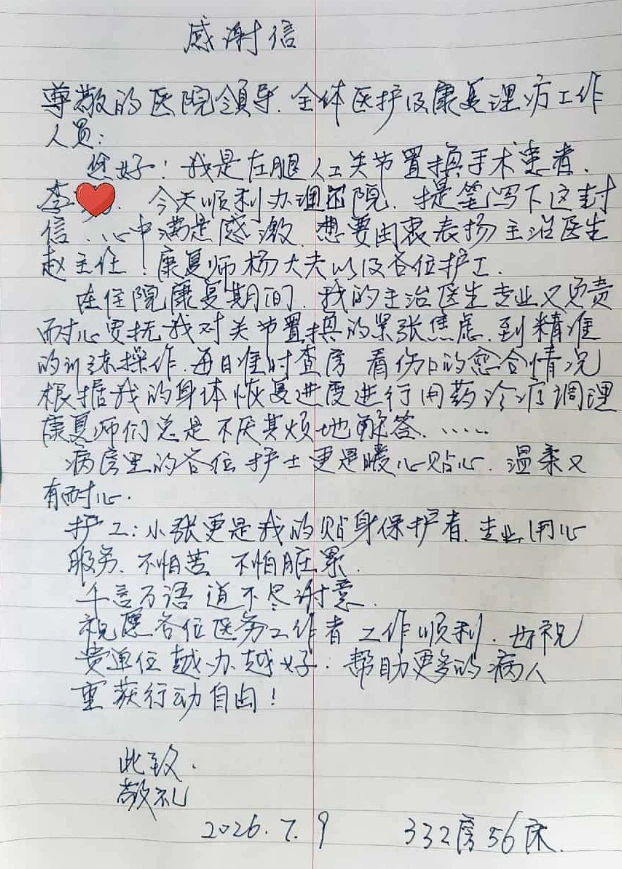 感谢信
尊敬的医院领导.全体医护及康复理疗工作
人员：
您好！我是左腿人工关节置换手术患者.
李 今天顺利办理出院.提笔写下这封
信.心中满是感激.想要由衷表扬主治医生
赵主任！康复师杨大夫以及各位护工.
在住院康复期间.我的主治医生专业又负责
耐心安抚我对关节置换的紧张焦虑.到精准
的训练操作.每日准时查房 看伤口的愈合情况
根据我的身体恢复进度进行用药治疗调理
康复师们总是不厌其烦地解答.……
病房里的各位护士更是暖心贴心.温柔又
有耐心.
护工：小张更是我的贴身保护者.专业用心
服务.不怕苦 不怕脏累.
千言万语 道不尽谢意.
祝愿各位医务工作者 工作顺利.也祝
贵单位越办越好.帮助更多的病人
重获行动自由！
此致.
敬礼
2026.7.9 332房56床.